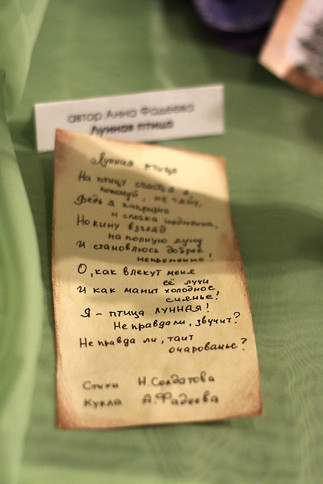 автор Анна Фадеева
Лунная птица
Лунная птица
На птицу счастья я,
пожалуй, не тяну,
Ведь я капризна
и слегка надменна,
Но кину взгляд
на полную луну
И становлюсь добрее
непременно!
О, как влекут меня
её лучи
И как манит холодное
сиянье!
Я – птица ЛУННАЯ!
Не правда ли, звучит?
Не правда ли, таит
очарованье?
Стихи Н. Солдатова
Кукла А. Фадеева